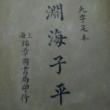 大字足本
淵海子平
上海錦章圖書局印行